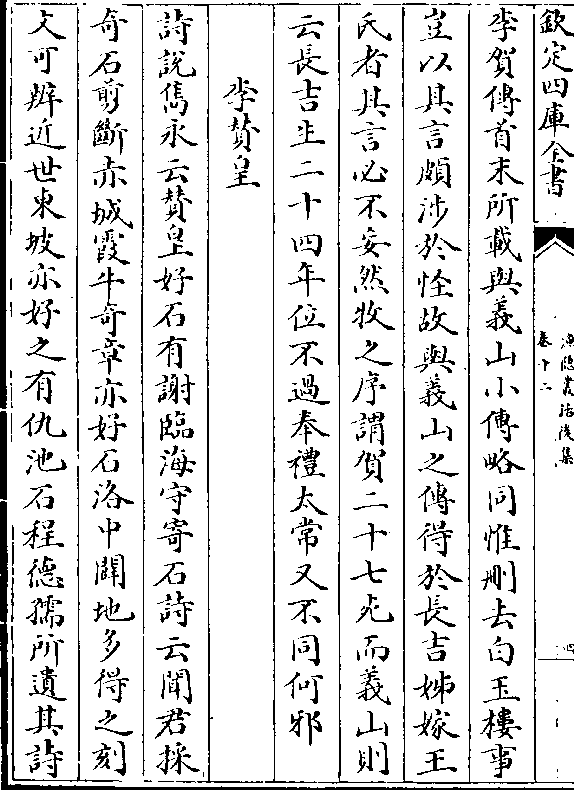 欽定四庫全書
漁隠叢話後集
卷十二
四
李賀傳首末所載與義山小傳略同惟刪去白玉樓事
豈以其言頗涉於怪故與義山之傳得於長吉姊嫁王
氏者其言必不妄然牧之序謂賀二十七死而義山則
云長吉生二十四年位不過奉禮太常又不同何邪
李賛皇
詩說雋永云賛皇好石有謝臨海守寄石詩云聞君採
奇石剪斷赤城霞牛奇章亦好石洛中闢地多得之刻
文可辨近世東坡亦好之有仇池石程德孺所遺其詩